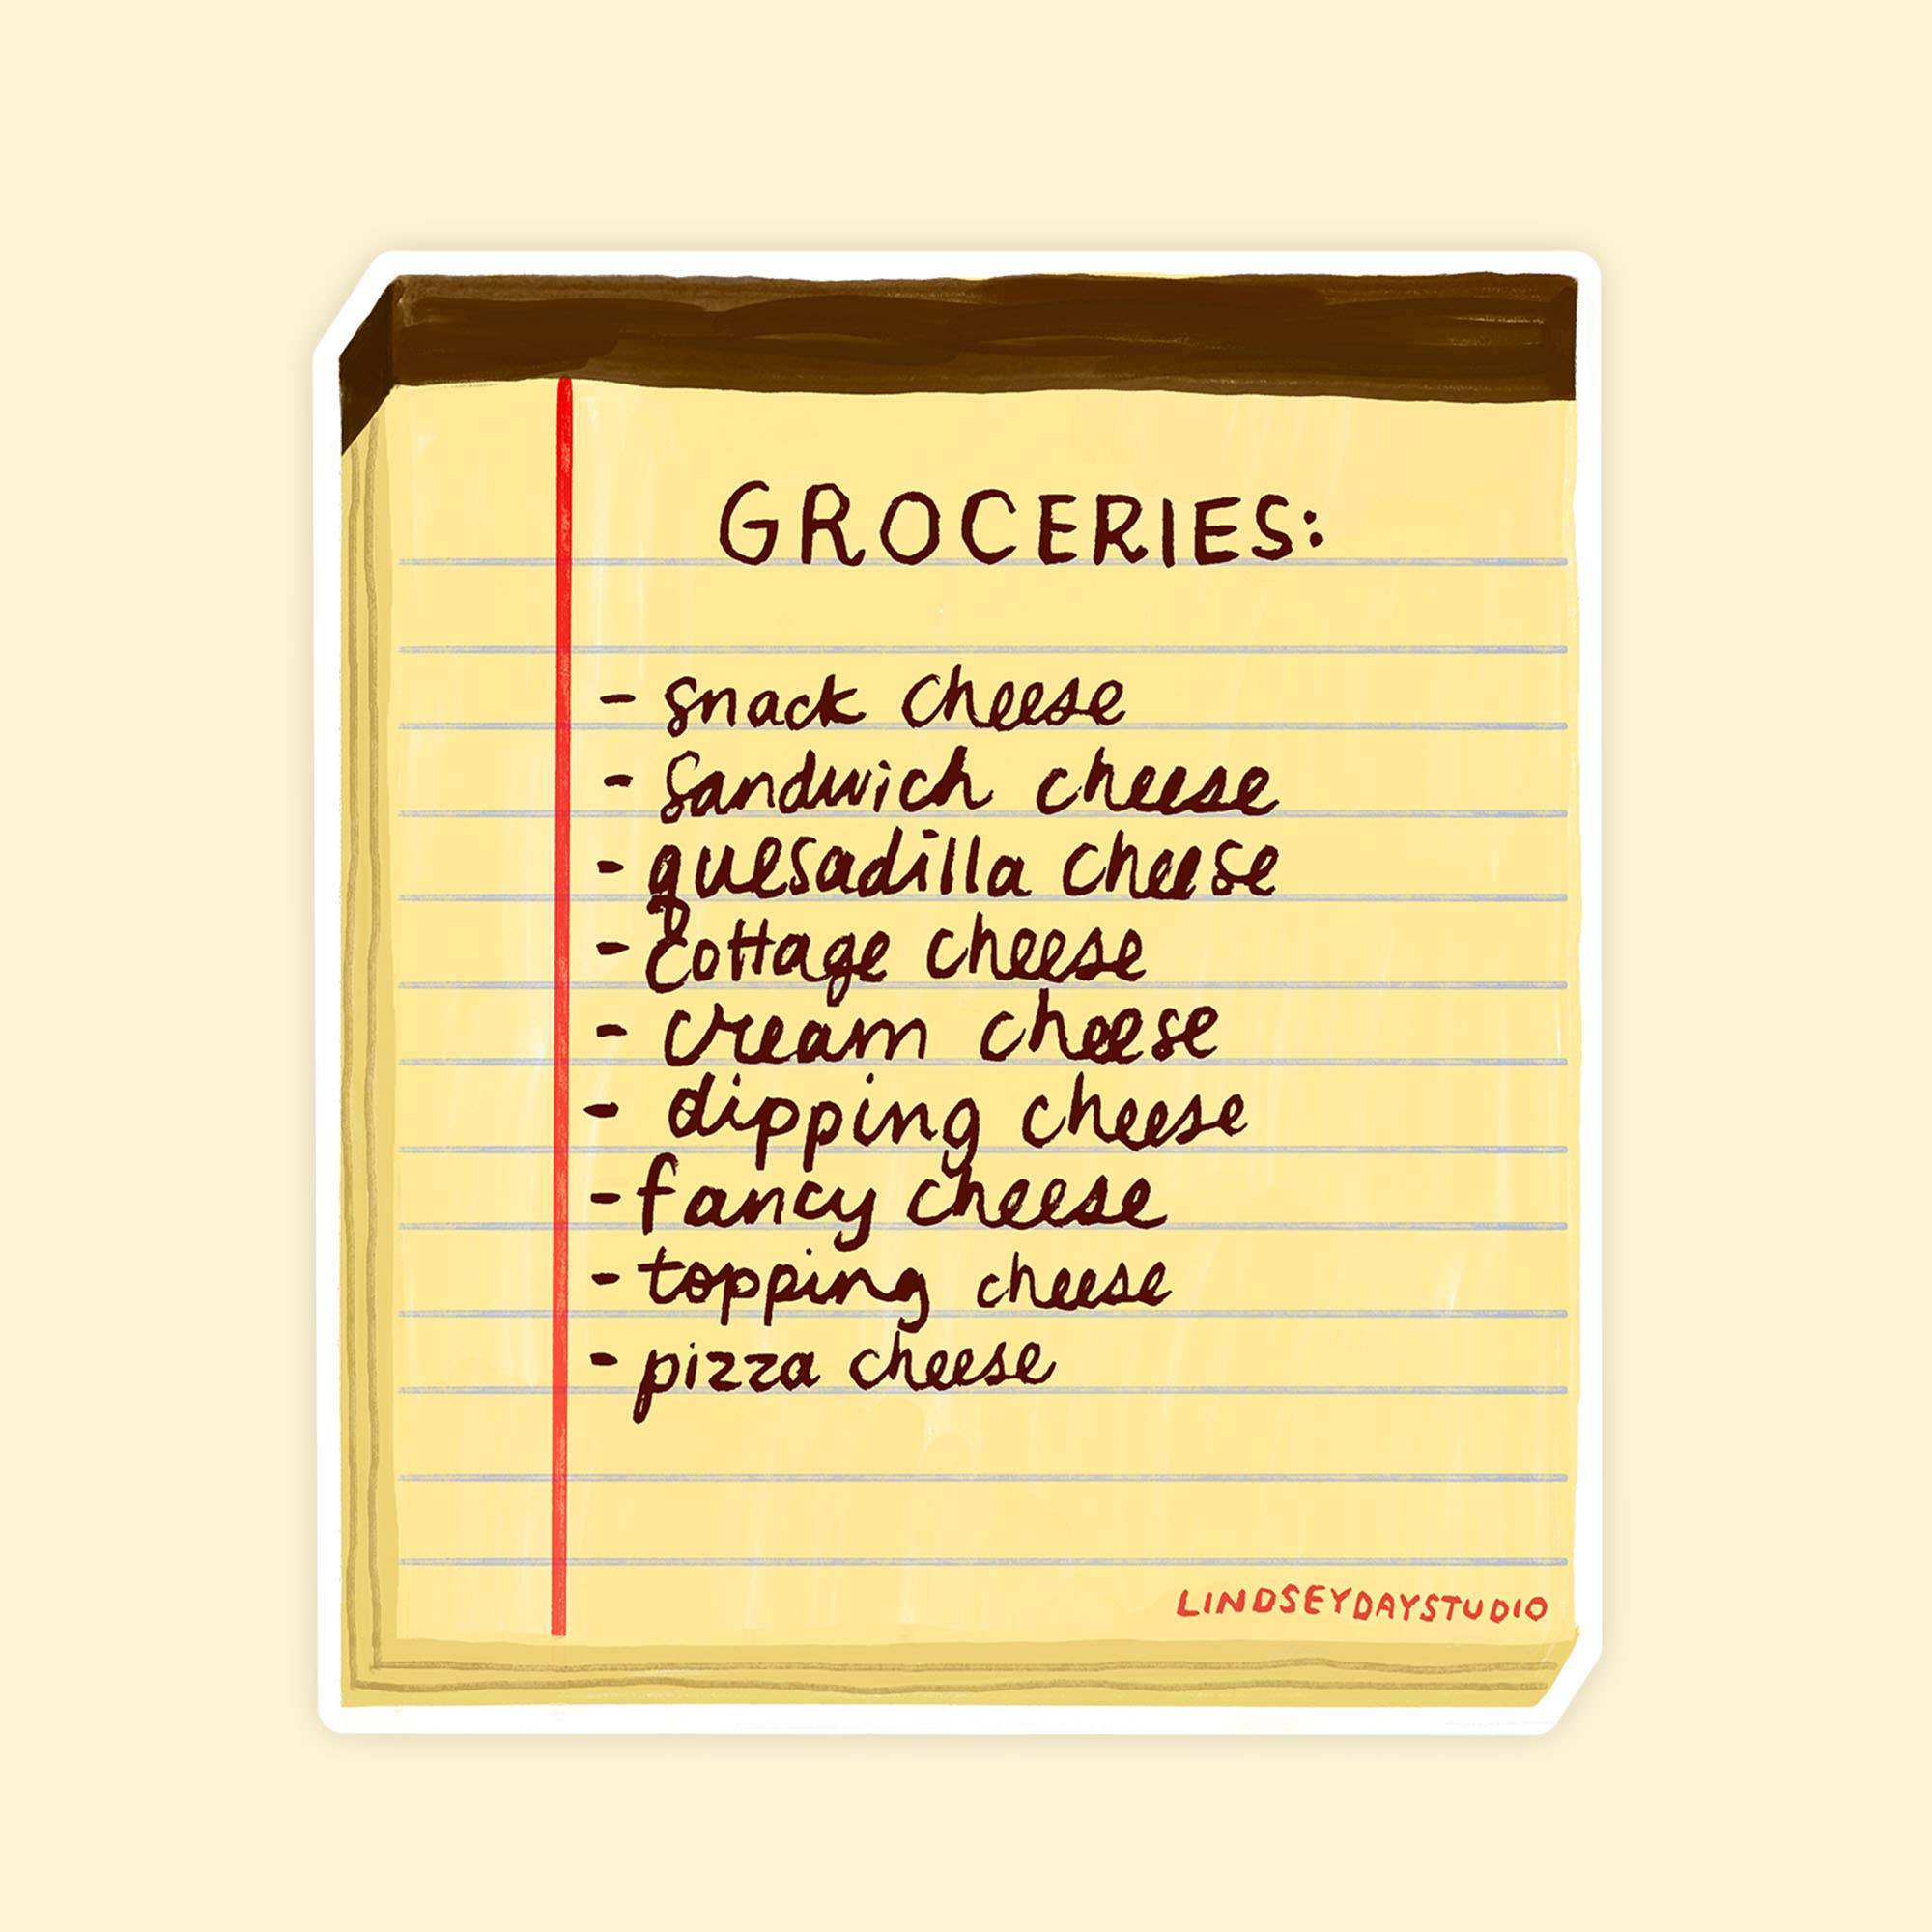 GROCERIES:
- snack cheese
- sandwich cheese
- quesadilla cheese
- cottage cheese
- cream cheese
- dipping cheese
- fancy cheese
- topping cheese
- pizza cheese
LINDSEYDAYSTUDIO